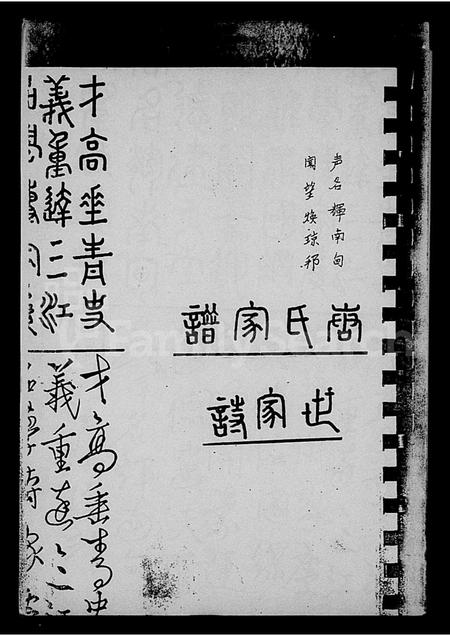 声名輝南甸
聞望煥琼邦
唐氏家譜
世家詩
才高垂青史
義重達三江
才高垂青史
義重達三江
FamilySearch